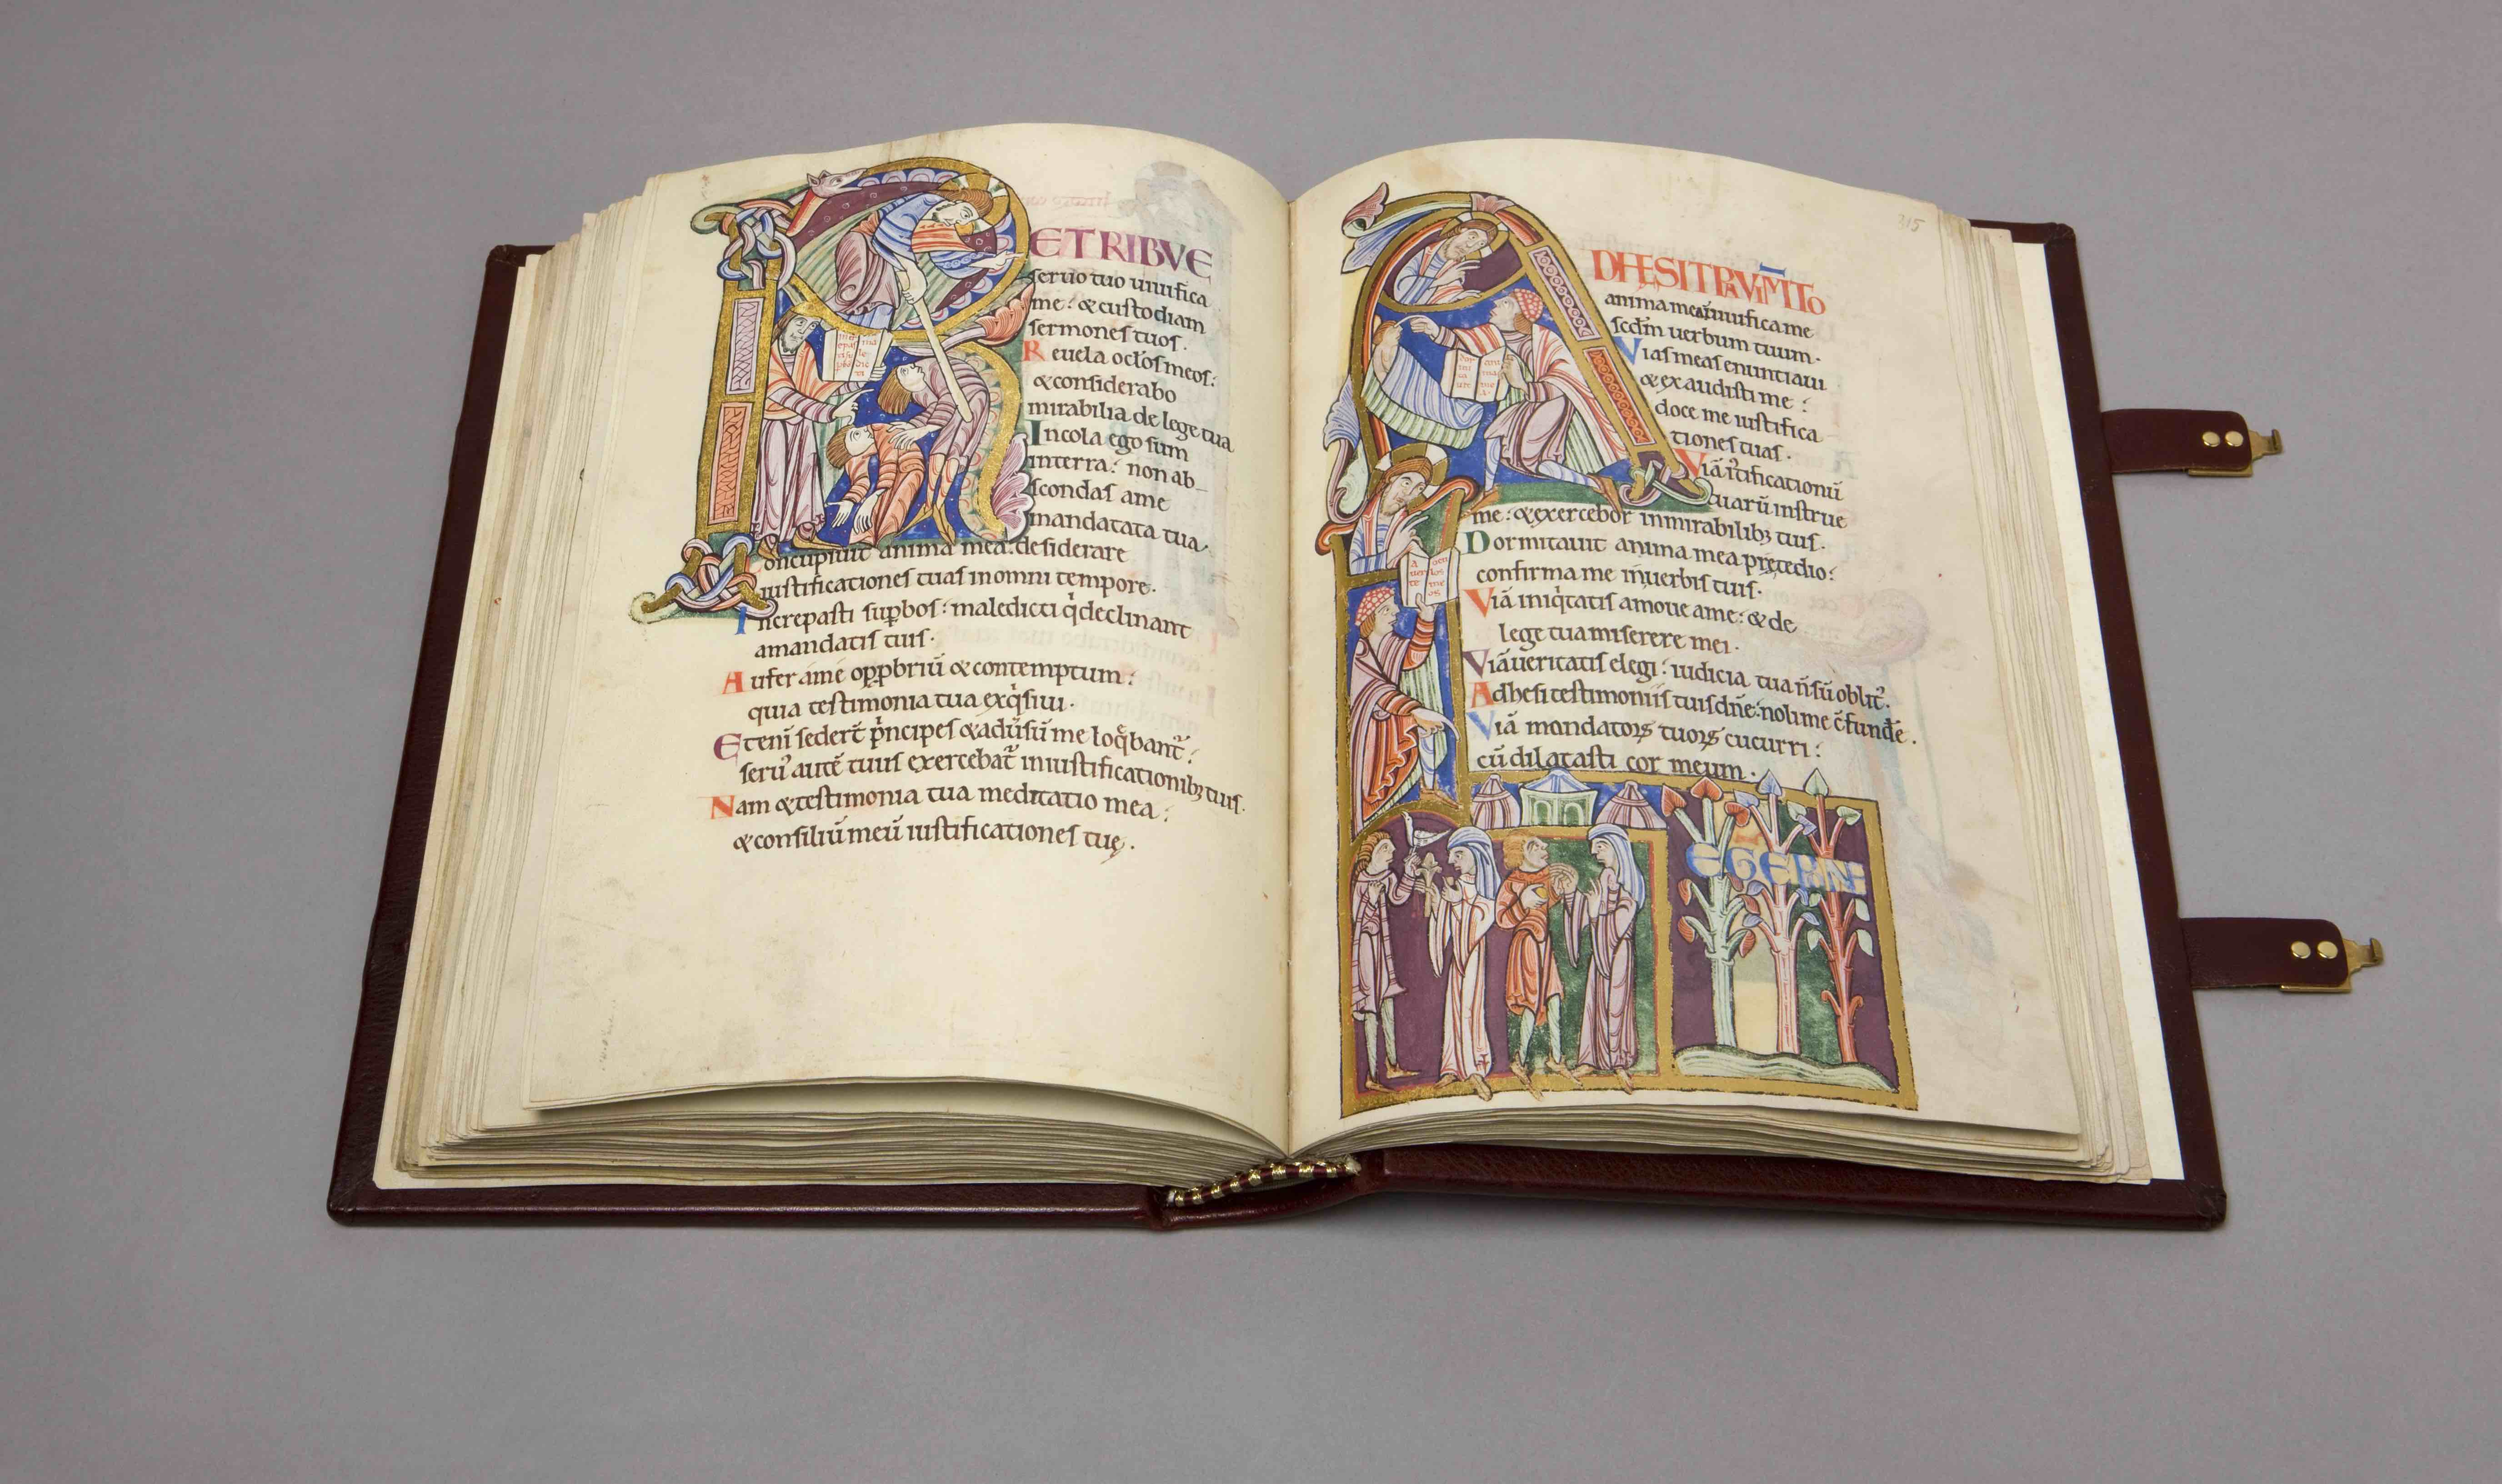 ETRIBVE
seruo tuo uiuifica
me: & custodiam
sermones tuos.
Reuela oclos meos:
& considerabo
mirabilia de lege tua
Incola ego sum
interra: non ab-
scondas ame
mandatata tua.
Concupiuit anima mea: desiderare
iustificationes tuas inomni tempore.
Increpasti supbos: maledicti q declinant
amandatis tuis.
Aufer ame oppbriū & contemptum:
quia testimonia tua exqsiui.
Etenī sedert pncipes & adusū me loqbant:
seru autē tuus exercebat iniustificationib; tuis.
Nam & testimonia tua meditatio mea:
& consiliū meū iustificationes tuę.
315
DHESITPAVIMTO
anima mea: uiuifica me
scdm uerbum tuum.
Vias meas enuntiaui
& exaudisti me:
doce me iustifica
tiones tuas.
Viā iustificationū
tuarū instrue
me: & exercebor inmirabilib; tuis.
Dormitauit anima mea prętedio:
confirma me inuerbis tuis.
Viā iniqtatis amoue ame: & de
lege tua miserere mei.
Viā ueritatis elegi: iudicia tua n̄ sū oblit.
Adhesi testimoniis tuis dn̄e: noli me c̄funde.
Viā mandatoꝝ tuoꝝ cucurri:
cū dilatasti cor meum.
EGEPN